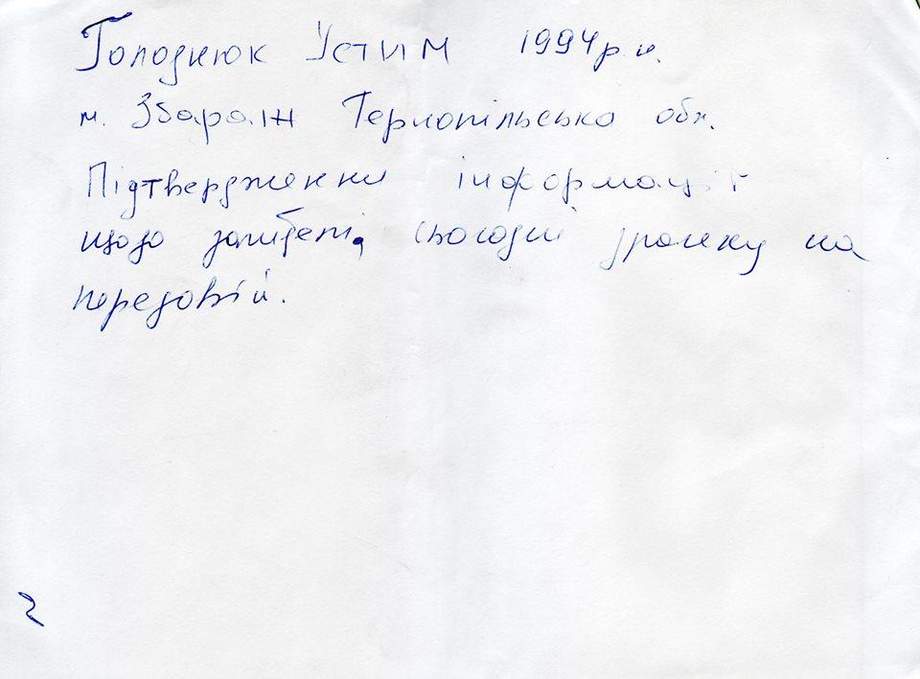 Голоднюк Устим 1994р.н.
м. Збараж Тернопільська обл.
Підтвердження інформації
щодо загибелі, сьогодні зранку на
передовій.
2